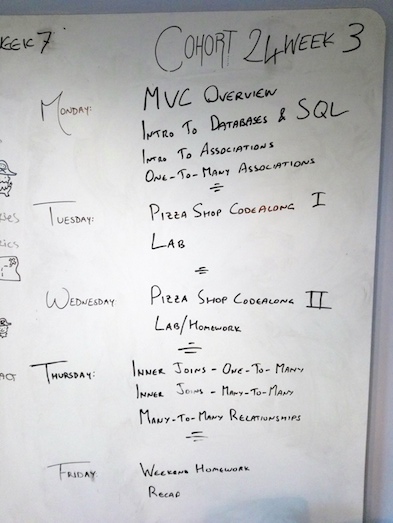 WEEK 7
COHORT 24 WEEK 3
MONDAY:
MVC OVERVIEW
INTRO TO DATABASES & SQL
INTRO TO ASSOCIATIONS
ONE-TO-MANY ASSOCIATIONS
TUESDAY:
PIZZA SHOP CODEALONG I
LAB
WEDNESDAY
PIZZA SHOP CODEALONG II
LAB/HOMEWORK
THURSDAY:
INNER JOINS - ONE-TO-MANY
INNER JOINS - MANY-TO-MANY
MANY-TO-MANY RELATIONSHIPS
FRIDAY
WEEKEND HOMEWORK
RECAP